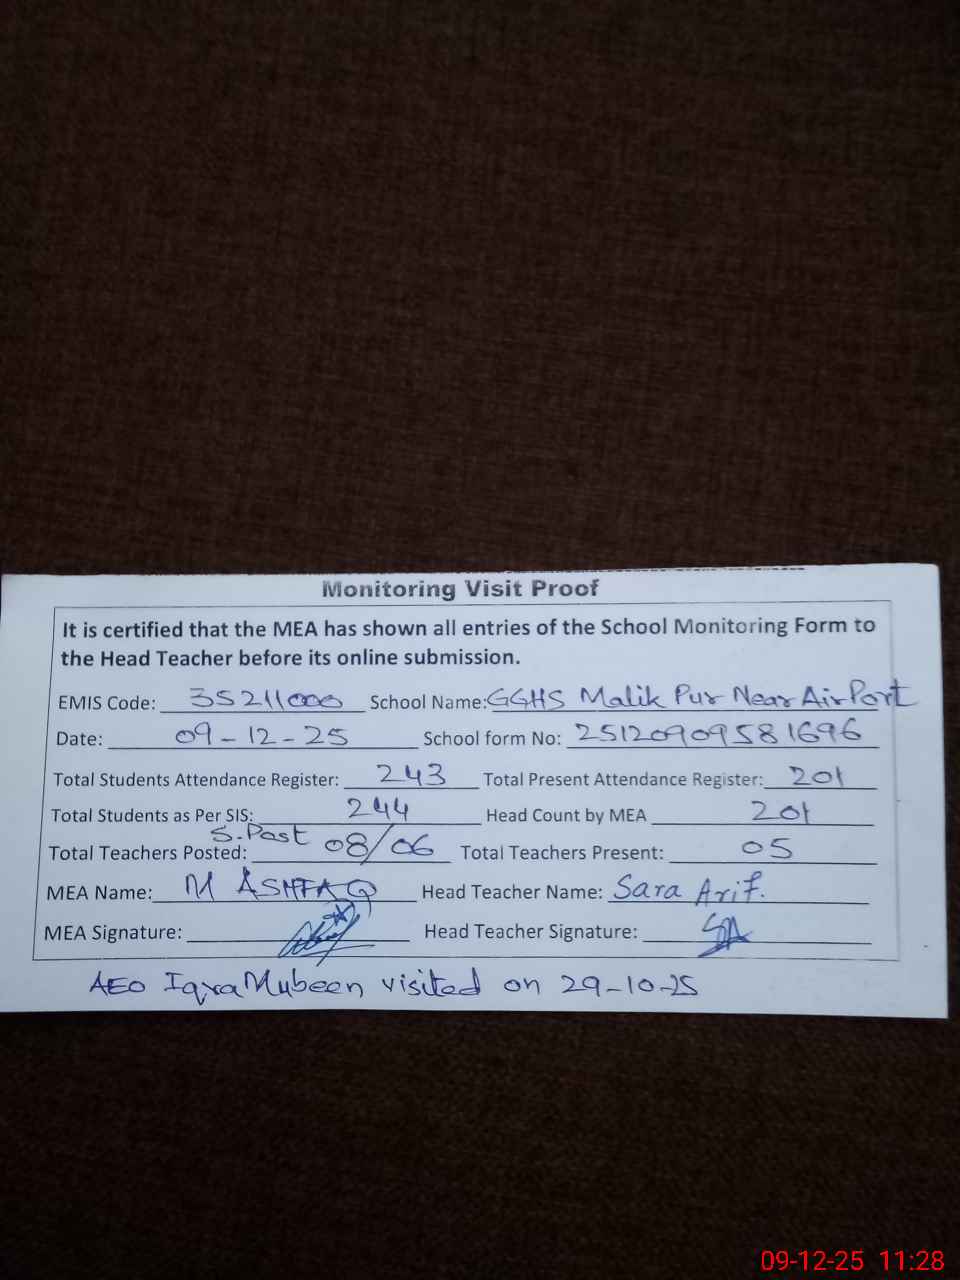 Monitoring Visit Proof
It is certified that the MEA has shown all entries of the School Monitoring Form to
the Head Teacher before its online submission.
EMIS Code: 35211000 School Name: GGHS Malik Pur Near Air Port
Date: 09-12-25 School form No: 2512090958 1696
Total Students Attendance Register: 243 Total Present Attendance Register: 201
Total Students as Per SIS: 244 Head Count by MEA 201
S.Post
Total Teachers Posted: 08/06 Total Teachers Present: 05
MEA Name: M ASHFAQ Head Teacher Name: Sara Arif.
MEA Signature: Head Teacher Signature: SA
AEO Iqra Mubeen visited on 29-10-25
09-12-25 11:28